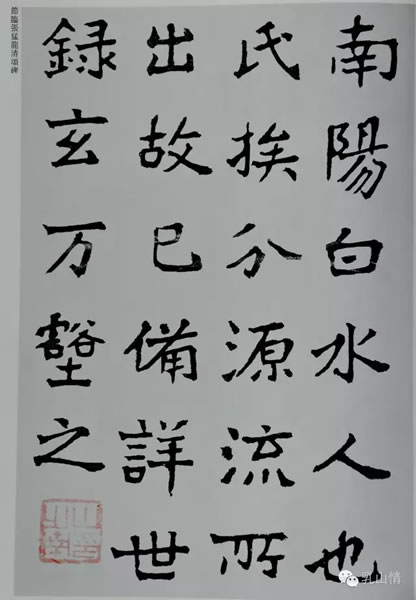 節臨張猛龍清頌碑
南陽白水人也
氏族分源流所
出故已備詳世
録玄万壑之
乳山情